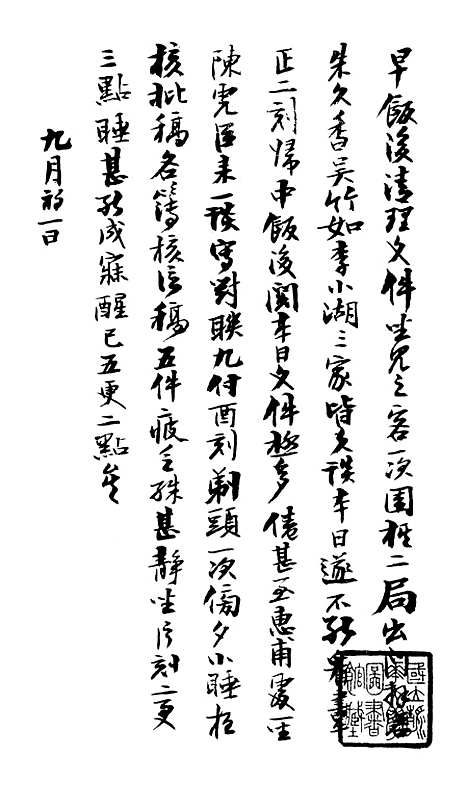 早飯後清理文件坐見之客一次圍棋二局出門拜
朱久香吳竹如李小湖三家皆久談本日遂不能治事
正二刻歸中飯後閱本日文件極多倦甚至惠甫處一坐
陳虎臣來一談寫對聯九付酉刻剃頭一次傍夕小睡夜
核批稿各簿核信稿五件疲乏殊甚靜坐片刻二更
三點睡甚能成寐醒已五更二點矣
九月初一日